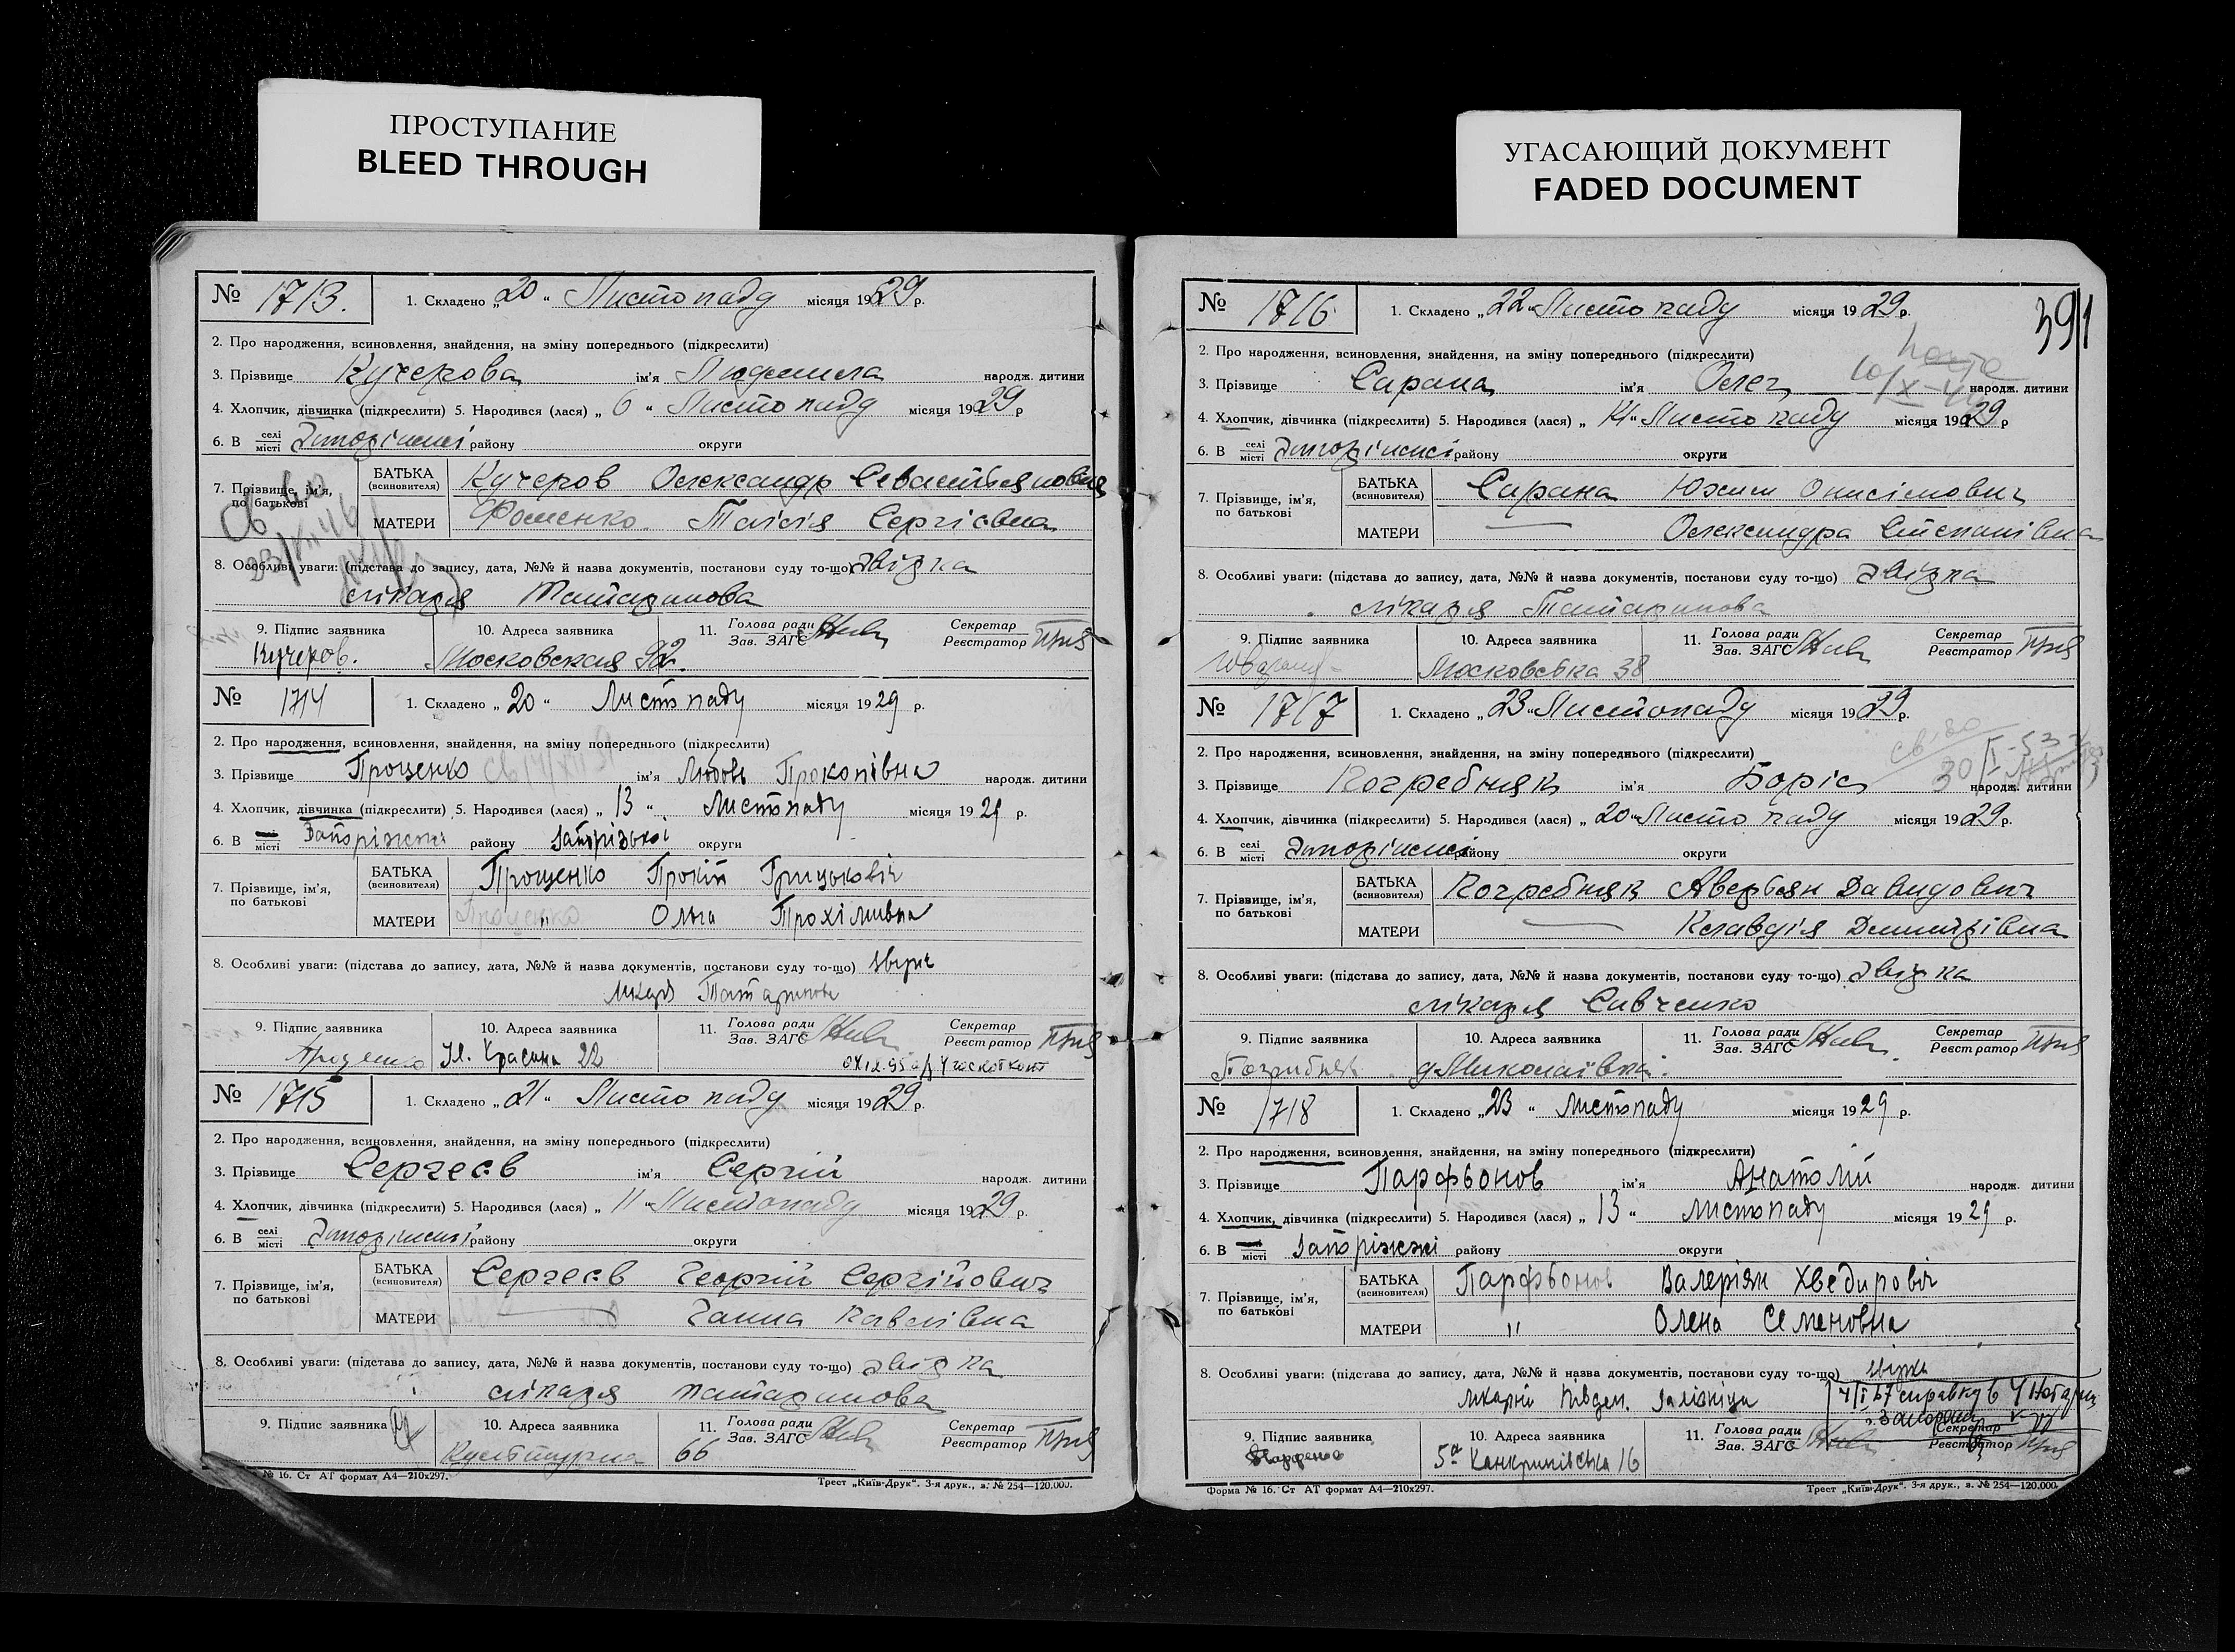 ПРОСТУПАНИЕ
BLEED THROUGH
УГАСАЮЩИЙ ДОКУМЕНТ
FADED DOCUMENT
№ 1713. 1. Складено „20“ Листопаду місяця 1929 р.
2. Про народження, всиновлення, знайдення, на зміну попереднього (підкреслити)
3. Прізвище Кучерова ім'я Людмила народж. дитини
4. Хлопчик, дівчинка (підкреслити) 5. Народився (лася) „6“ Листопаду місяця 1929 р
6. В селі місті Запоріжжі району округи
7. Прізвище, ім'я, по батькові
БАТЬКА (всиновителя) Кучеров Олександр Севастьянович
МАТЕРИ Фоменко Таісія Сергієвна
8. Особливі уваги: (підстава до запису, дата, №№ й назва документів, постанови суду то-що) звідка
лікаря Татаринова
9. Підпис заявника 10. Адреса заявника 11. Голова ради Зав. ЗАГС Секретар Реєстратор
Кучеров. Московская 92.
№ 1714 1. Складено „20“ Листопаду місяця 1929 р.
2. Про народження, всиновлення, знайдення, на зміну попереднього (підкреслити)
3. Прізвище Проценко ім'я Любовь Прокопівна народж. дитини
4. Хлопчик, дівчинка (підкреслити) 5. Народився (лася) „13“ Листопаду місяця 1929 р.
6. В місті Запоріжжі району Запорізької округи
7. Прізвище, ім'я, по батькові
БАТЬКА (всиновителя) Проценко Прокіп Грицькович
МАТЕРИ Проценко " Ольга Трохімивна
8. Особливі уваги: (підстава до запису, дата, №№ й назва документів, постанови суду то-що)
Татаринова
9. Підпис заявника 10. Адреса заявника 11. Голова ради Зав. ЗАГС Секретар Реєстратор
Проценко Ул. Красина 22
№ 1715 1. Складено „21“ Листопаду місяця 1929 р.
2. Про народження, всиновлення, знайдення, на зміну попереднього (підкреслити)
3. Прізвище Сергеєв ім'я Сергій народж. дитини
4. Хлопчик, дівчинка (підкреслити) 5. Народився (лася) „11“ Листопаду місяця 1929 р.
6. В селі місті Запоріжжі району округи
7. Прізвище, ім'я, по батькові
БАТЬКА (всиновителя) Сергеєв Георгій Сергійович
МАТЕРИ — Ганна Павлівна
8. Особливі уваги: (підстава до запису, дата, №№ й назва документів, постанови суду то-що) звідка
лікаря Татаринова
9. Підпис заявника 10. Адреса заявника 11. Голова ради Зав. ЗАГС Секретар Реєстратор
Культурна 66
№ 16. Ст АТ формат А4—210х297. Трест „Київ-Друк“. 3-я друк., в. № 254—120.000.
391
№ 1716 1. Складено „22“ Листопаду місяця 1929 р.
2. Про народження, всиновлення, знайдення, на зміну попереднього (підкреслити)
3. Прізвище Сарана ім'я Олег народж. дитини
4. Хлопчик, дівчинка (підкреслити) 5. Народився (лася) „14“ Листопаду місяця 1929 р
6. В селі місті Запоріжжі району округи
7. Прізвище, ім'я, по батькові
БАТЬКА (всиновителя) Сарана Юхим Онисімович
МАТЕРИ — Олександра Степанівна
8. Особливі уваги: (підстава до запису, дата, №№ й назва документів, постанови суду то-що) звідка
лікаря Татаринова
9. Підпис заявника 10. Адреса заявника 11. Голова ради Зав. ЗАГС Секретар Реєстратор
Московська 38
№ 1717 1. Складено „23“ Листопаду місяця 1929 р.
2. Про народження, всиновлення, знайдення, на зміну попереднього (підкреслити)
3. Прізвище Погребняк ім'я Боріс народж. дитини
4. Хлопчик, дівчинка (підкреслити) 5. Народився (лася) „20“ Листопаду місяця 1929 р.
6. В селі місті Запоріжжі району округи
7. Прізвище, ім'я, по батькові
БАТЬКА (всиновителя) Погребняк Авер'ян Давидович
МАТЕРИ — Клавдія Дмитрівна
8. Особливі уваги: (підстава до запису, дата, №№ й назва документів, постанови суду то-що) звідка
лікаря Савченко
9. Підпис заявника 10. Адреса заявника 11. Голова ради Зав. ЗАГС Секретар Реєстратор
Погрибняк д. Миколаївка
№ 1718 1. Складено „23“ Листопаду місяця 1929 р.
2. Про народження, всиновлення, знайдення, на зміну попереднього (підкреслити)
3. Прізвище Парфьонов ім'я Анатолій народж. дитини
4. Хлопчик, дівчинка (підкреслити) 5. Народився (лася) „13“ Листопаду місяця 1929 р.
6. В місті Запоріжжі району округи
7. Прізвище, ім'я, по батькові
БАТЬКА (всиновителя) Парфьонов Валеріян Хведирович
МАТЕРИ " Олена Семеновна
8. Особливі уваги: (підстава до запису, дата, №№ й назва документів, постанови суду то-що)
лікарні Півден. Залізниця
9. Підпис заявника 10. Адреса заявника 11. Голова ради Зав. ЗАГС Секретар Реєстратор
5а Канкринівська 16
Форма № 16. Ст АТ формат А4—210х297. Трест „Київ-Друк“. 3-я друк., в. № 254—120.000.